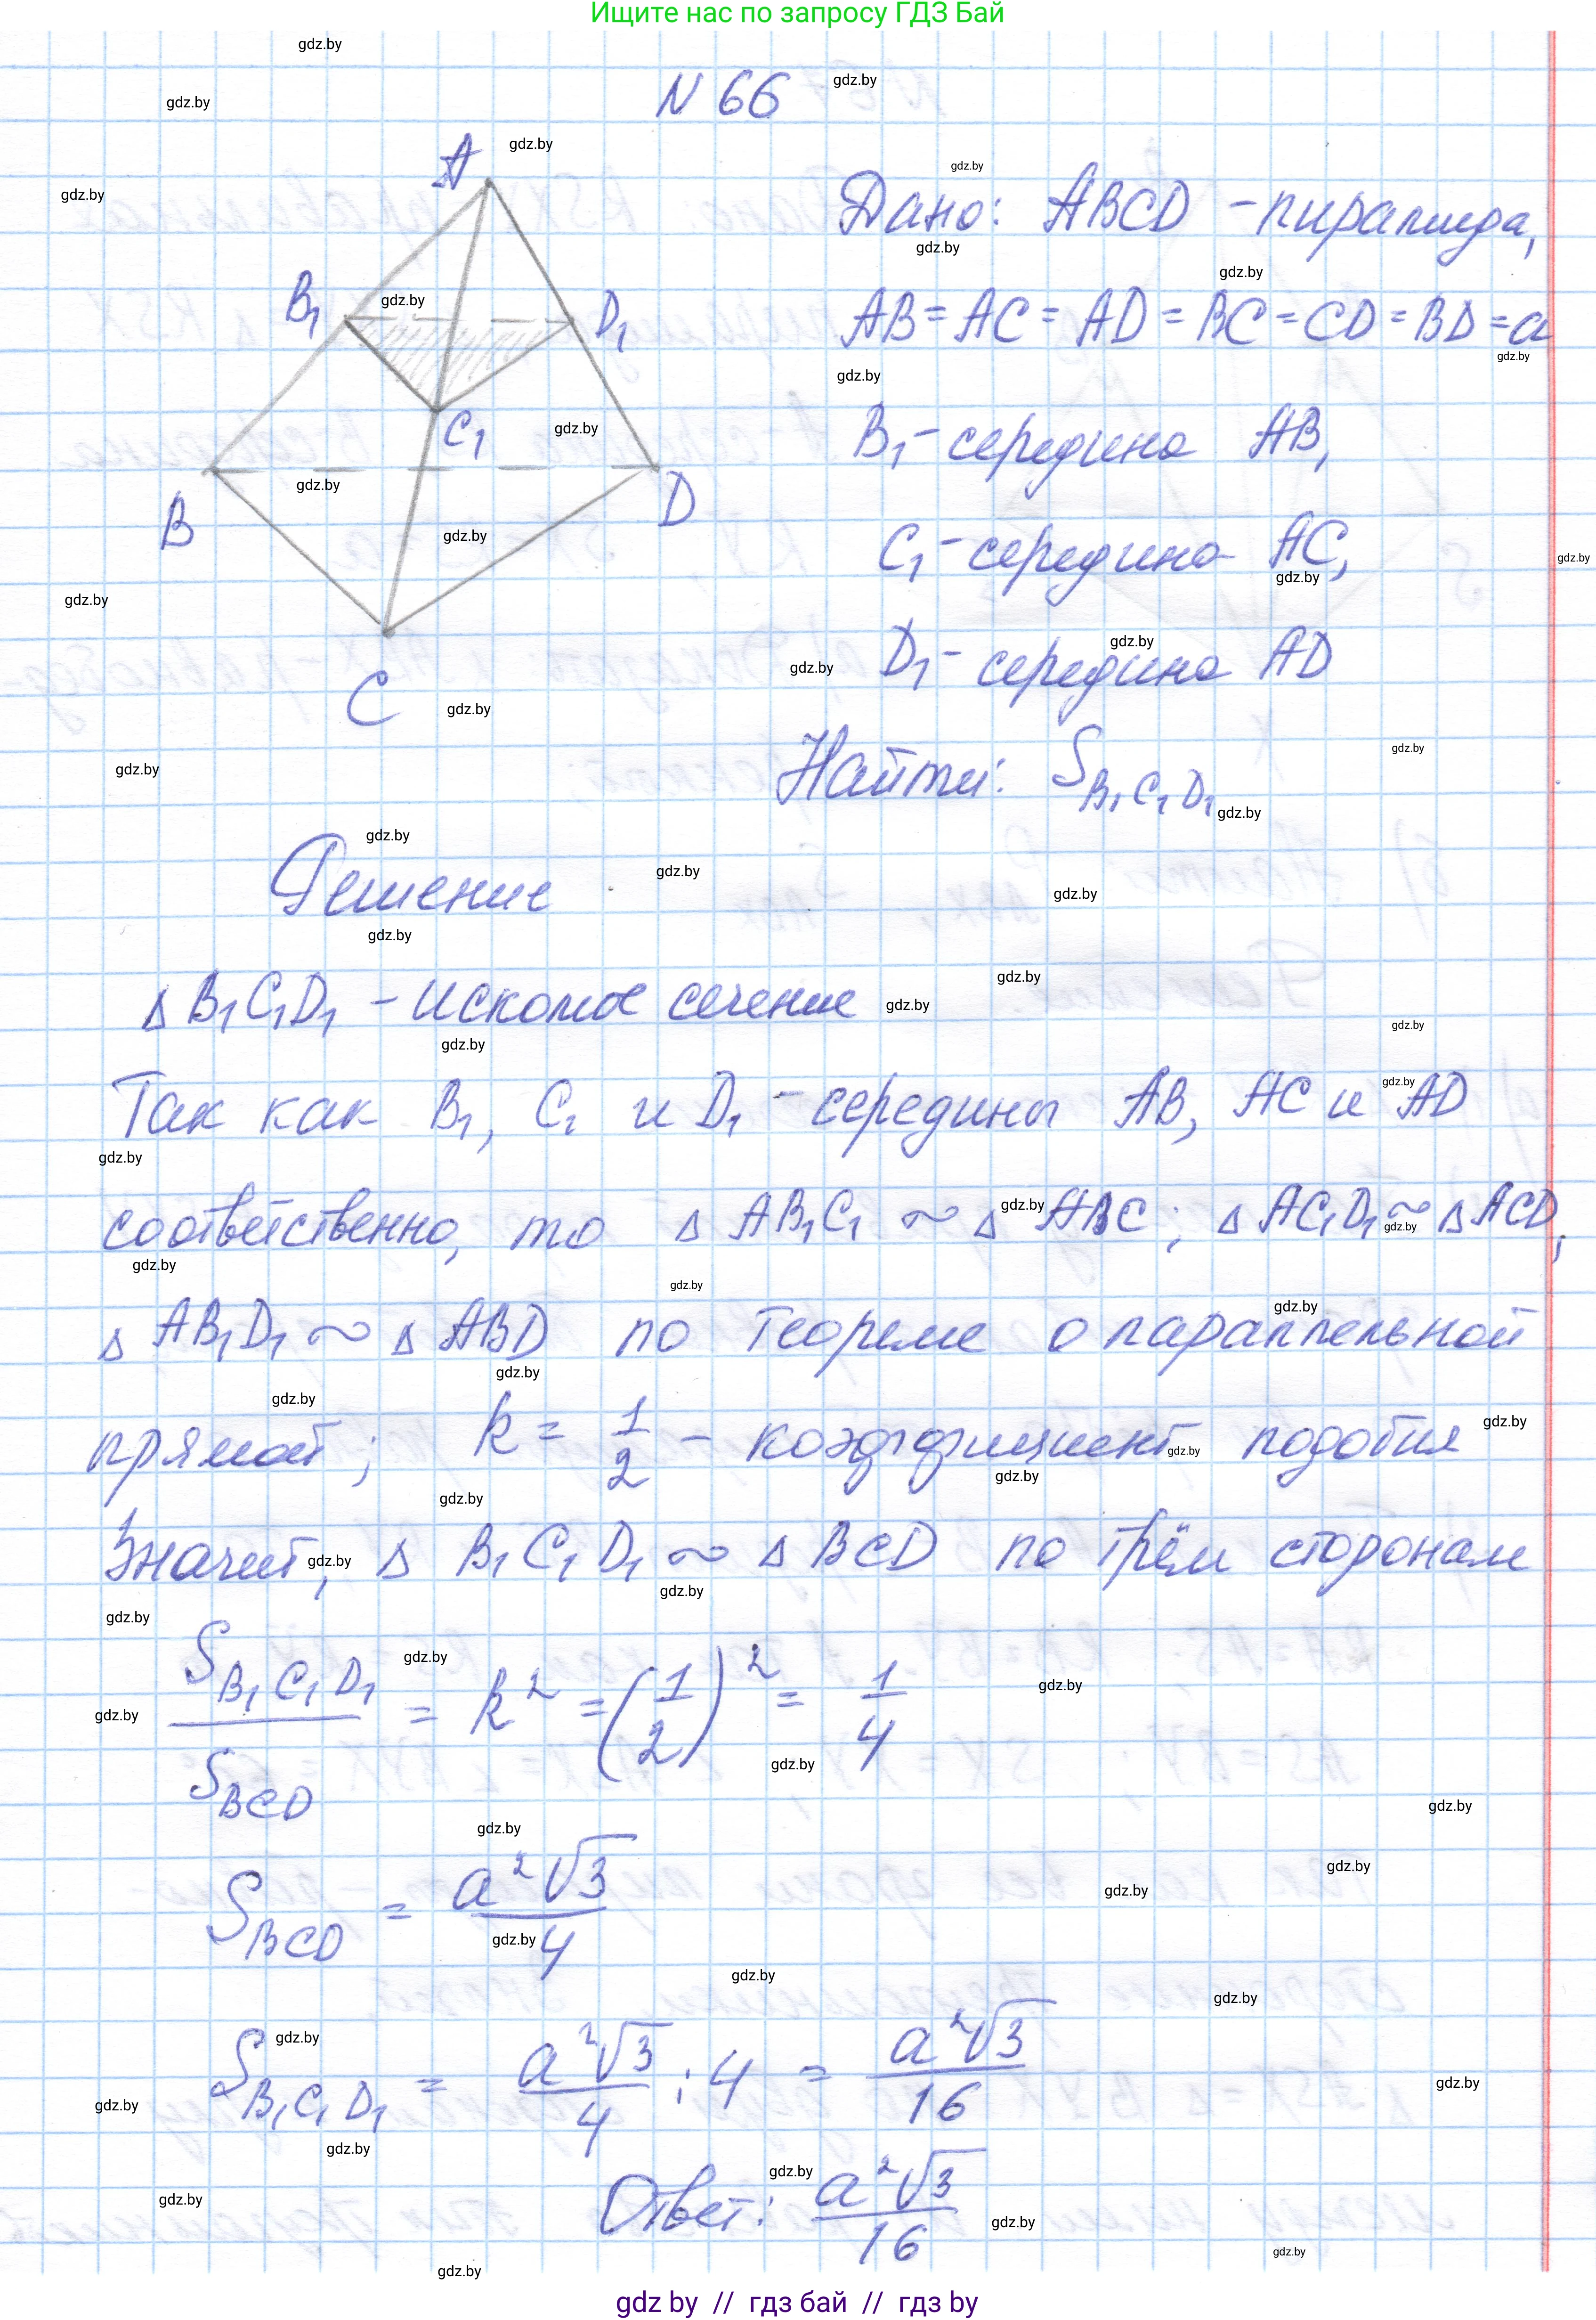 Ищите нас по запросу ГДЗ Бай
N 66
A
B₁
D₁
C₁
B
D
C
Дано: ABCD - пирамида,
AB = AC = AD = BC = CD = BD = a
B₁ - середина AB,
C₁ - середина AC,
D₁ - середина AD
Найти: S_{B₁C₁D₁}
Решение
△ B₁C₁D₁ - искомое сечение
Так как B₁, C₁ и D₁ - середины AB, AC и AD
соответственно, то △ AB₁C₁ ~ △ ABC; △ AC₁D₁ ~ △ ACD,
△ AB₁D₁ ~ △ ABD по теореме о параллельной
прямой; k = 1/2 - коэффициент подобия
Значит, △ B₁C₁D₁ ~ △ BCD по трём сторонам
S_{B₁C₁D₁} / S_{BCD} = k² = (1/2)² = 1/4
S_{BCD} = a²√3 / 4
S_{B₁C₁D₁} = a²√3 / 4 : 4 = a²√3 / 16
Ответ: a²√3 / 16
gdz by // гдз бай // гдз by